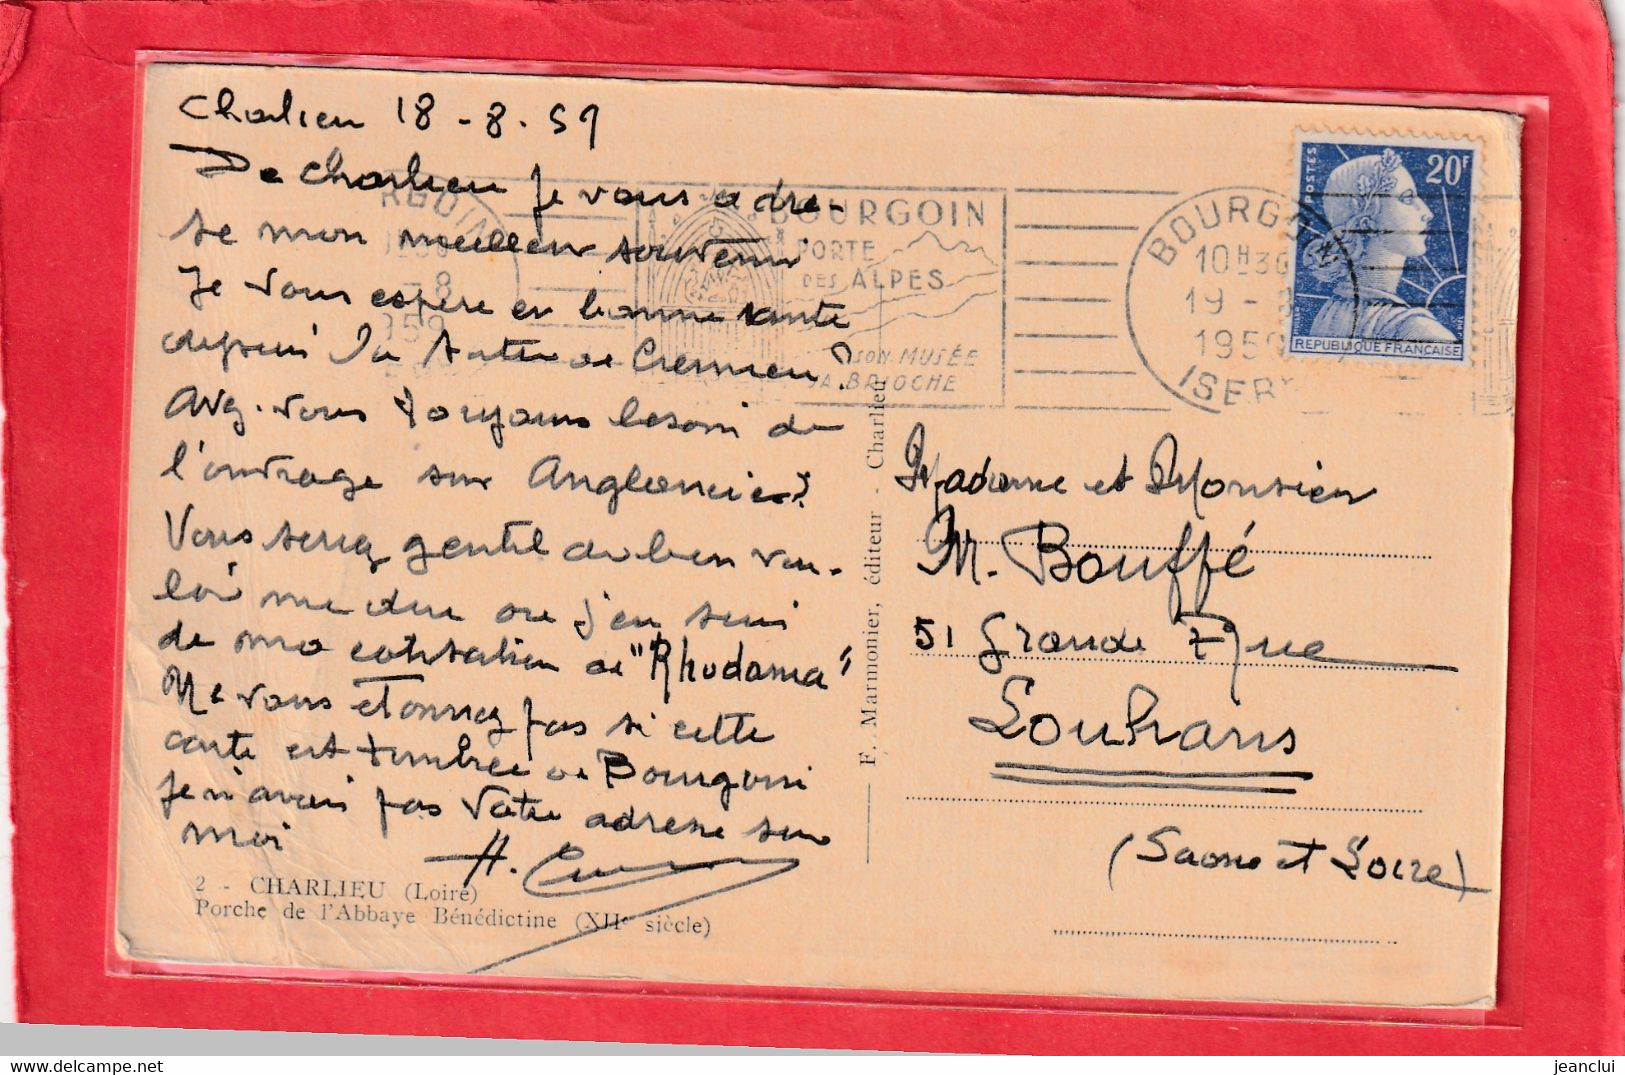 Charlieu 18-8.59
De Charlieu je vous adre-
sse mon meilleur souvenir
Je vous espère en bonne santé
depuis
Avez-vous toujours besoin de
l'ouvrage sur
Vous serez gentil de bien vou-
loir me dire où j'en suis
de ma cotisation de "Rhodania"
Ne vous étonnez pas si cette
carte est timbrée de Bourgoin
je n'avais pas votre adresse sur
moi
H.
2 - CHARLIEU (Loire)
Porche de l'Abbaye Bénédictine (XIIe siècle)
F. Marmonier, éditeur - Charlieu
BOURGOIN
PORTE
DES ALPES
SON MUSÉE
SA BRIOCHE
BOURGOIN
10H30
19 - 8
1959
ISERE
POSTES
20F
REPUBLIQUE FRANÇAISE
Madame et Monsieur
M. Bouffé
51 Grande Rue
Louhans
(Saone et Loire)
jeanclui